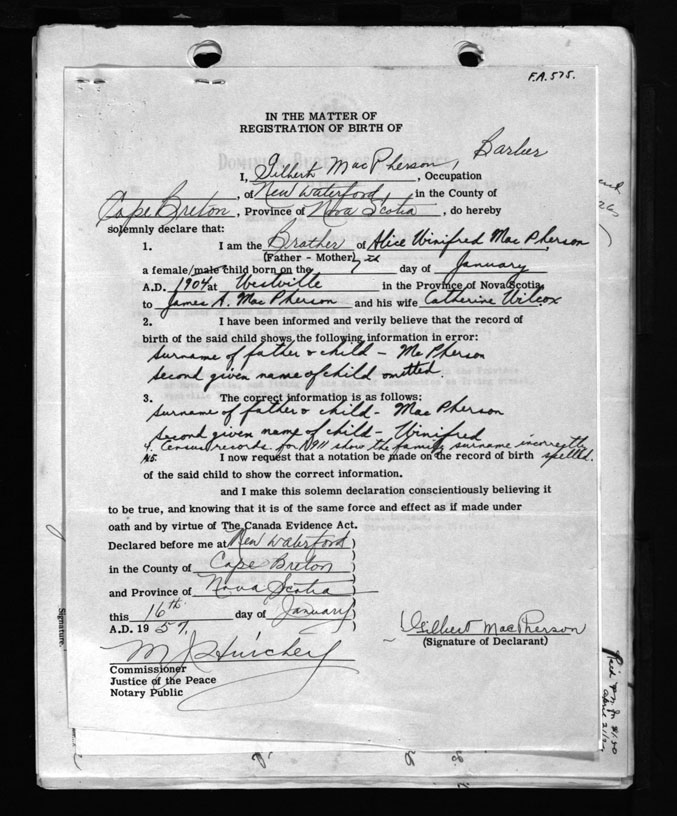 F.A. 575.
IN THE MATTER OF
REGISTRATION OF BIRTH OF
I, Gilbert MacPherson, Occupation Barber
, of New Waterford, in the County of
Cape Breton, Province of Nova Scotia, do hereby
solemnly declare that:
1. I am the Brother of Alice Winifred MacPherson
(Father - Mother)
a female/male child born on the day of January
A.D. 1904 at Westville in the Province of Nova Scotia,
to James A. MacPherson and his wife Catherine Wilcox
2. I have been informed and verily believe that the record of
birth of the said child shows the following information in error:
surname of father & child - McPherson
second given name of child omitted.
3. The correct information is as follows:
surname of father & child - MacPherson
second given name of child - Winifred
4. Census records for 1911 show the family surname incorrectly spelled.
5. I now request that a notation be made on the record of birth
of the said child to show the correct information.
and I make this solemn declaration conscientiously believing it
to be true, and knowing that it is of the same force and effect as if made under
oath and by virtue of The Canada Evidence Act.
Declared before me at New Waterford )
in the County of Cape Breton )
and Province of Nova Scotia )
this 16th day of January )
A.D. 1957. )
Gilbert MacPherson
(Signature of Declarant)
Commissioner
Justice of the Peace
Notary Public
Signature.